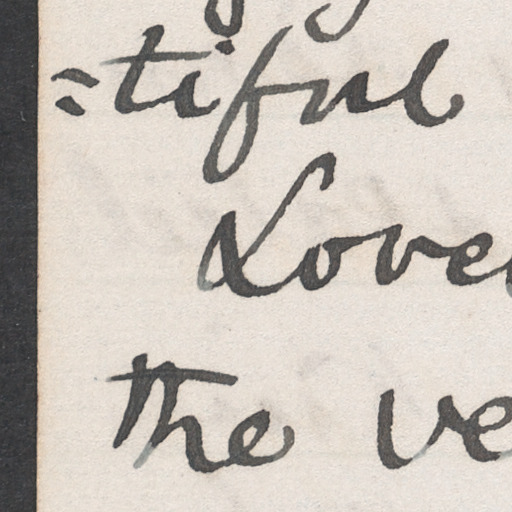 =tiful
Love
the ve